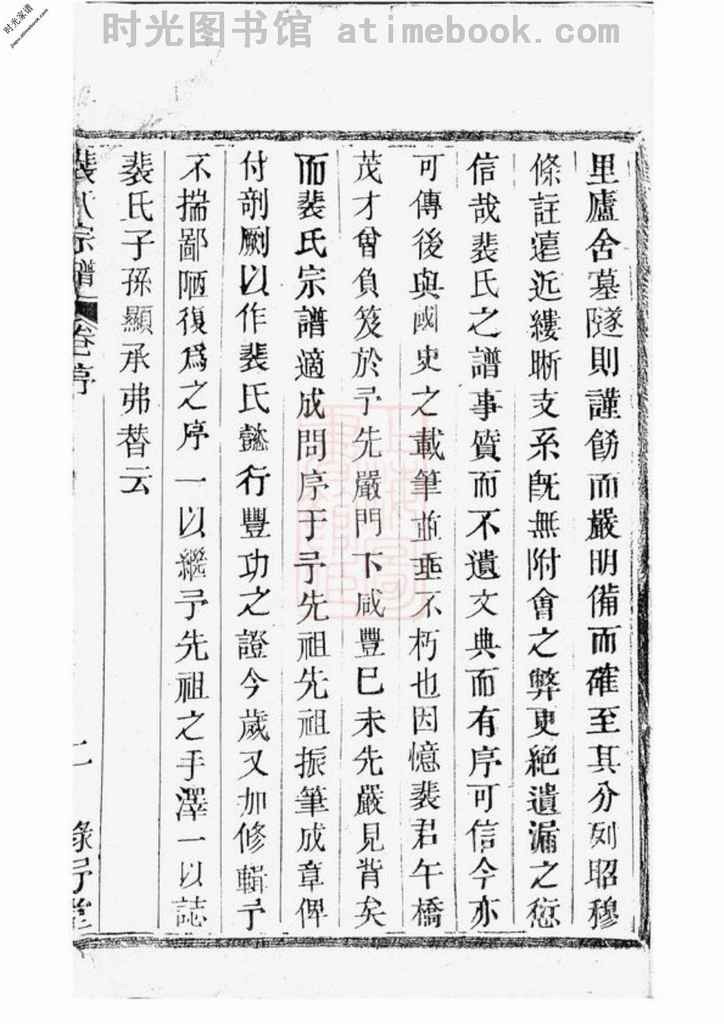 时光图书馆 atimebook.com
时光家谱
里廬舍墓隧則謹飭而嚴明備而確至其分列昭穆
條註遠近縷晰支系旣無附會之弊更絕遺漏之愆
信哉裴氏之譜事質而不遺文典而有序可信今亦
可傳後與國史之載筆並垂不朽也因憶裴君午橋
茂才曾負笈於予先嚴門下咸豐巳未先嚴見背矣
而裴氏宗譜適成問序于予先祖先祖振筆成章俾
付剞劂以作裴氏懿行豐功之證今歲又加修輯予
不揣鄙陋復爲之序一以繼予先祖之手澤一以誌
裴氏子孫顯承弗替云
裴氏宗譜 卷一序 二 綠野堂